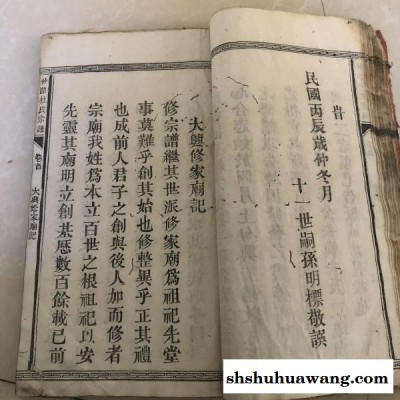 昔
民國丙辰歲仲冬月
十一世嗣孫明標敬譔
大興修家廟記
修宗譜繼其世派修家廟為祖祀先堂
事莫難乎創其始也修整異乎正其禮
也成前人君子之創與後人加而修者
宗廟我姓為本立百世之根祖祀以安
先靈其廟明立創基歷數百餘載已前
杜氏宗譜
卷首
大興修家廟記
shshuhuawang.com